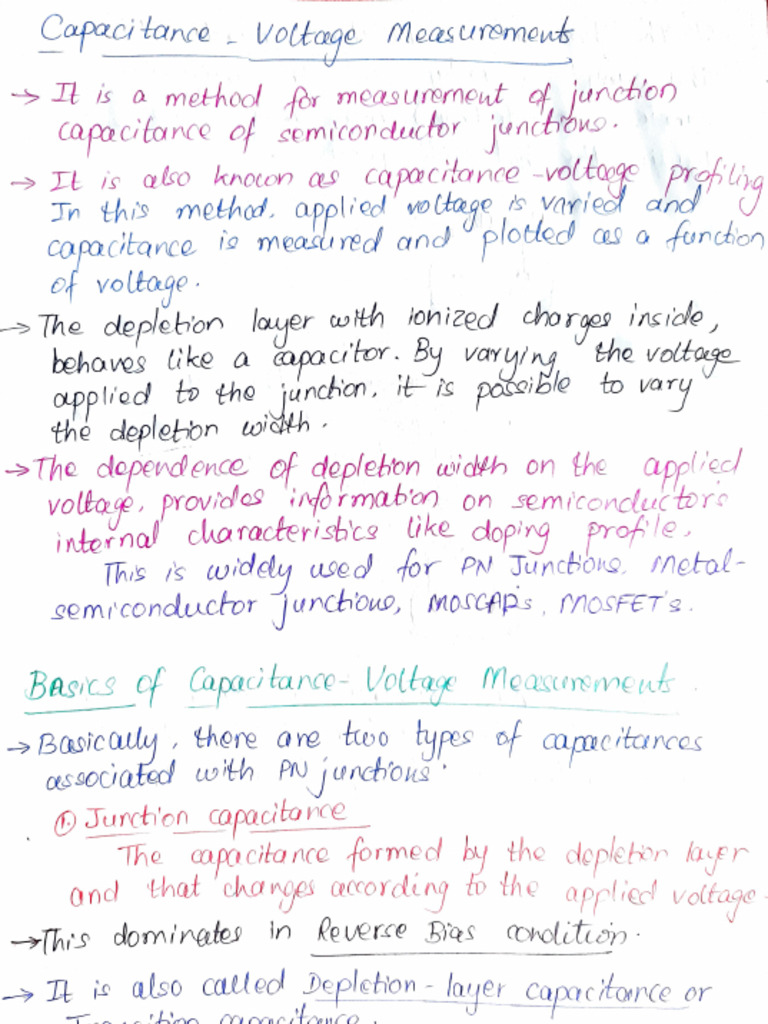 Capacitance - Voltage Measurements
→ It is a method for measurement of junction
capacitance of semiconductor junctions.
→ It is also known as capacitance-voltage profiling
In this method, applied voltage is varied and
capacitance is measured and plotted as a function
of voltage.
→ The depletion layer with ionized charges inside,
behaves like a capacitor. By varying the voltage
applied to the junction, it is possible to vary
the depletion width.
→ The dependence of depletion width on the applied
voltage, provides information on semiconductors
internal characteristics like doping profile.
This is widely used for PN Junctions, Metal-
semiconductor junctions, MOSCAPs, MOSFET's.
Basics of Capacitance-Voltage Measurements.
→ Basically, there are two types of capacitances
associated with PN junctions.
① Junction capacitance
The capacitance formed by the depletion layer
and that changes according to the applied voltage.
→ This dominates in Reverse Bias condition.
→ It is also called Depletion-layer capacitance or
Transition capacitance.